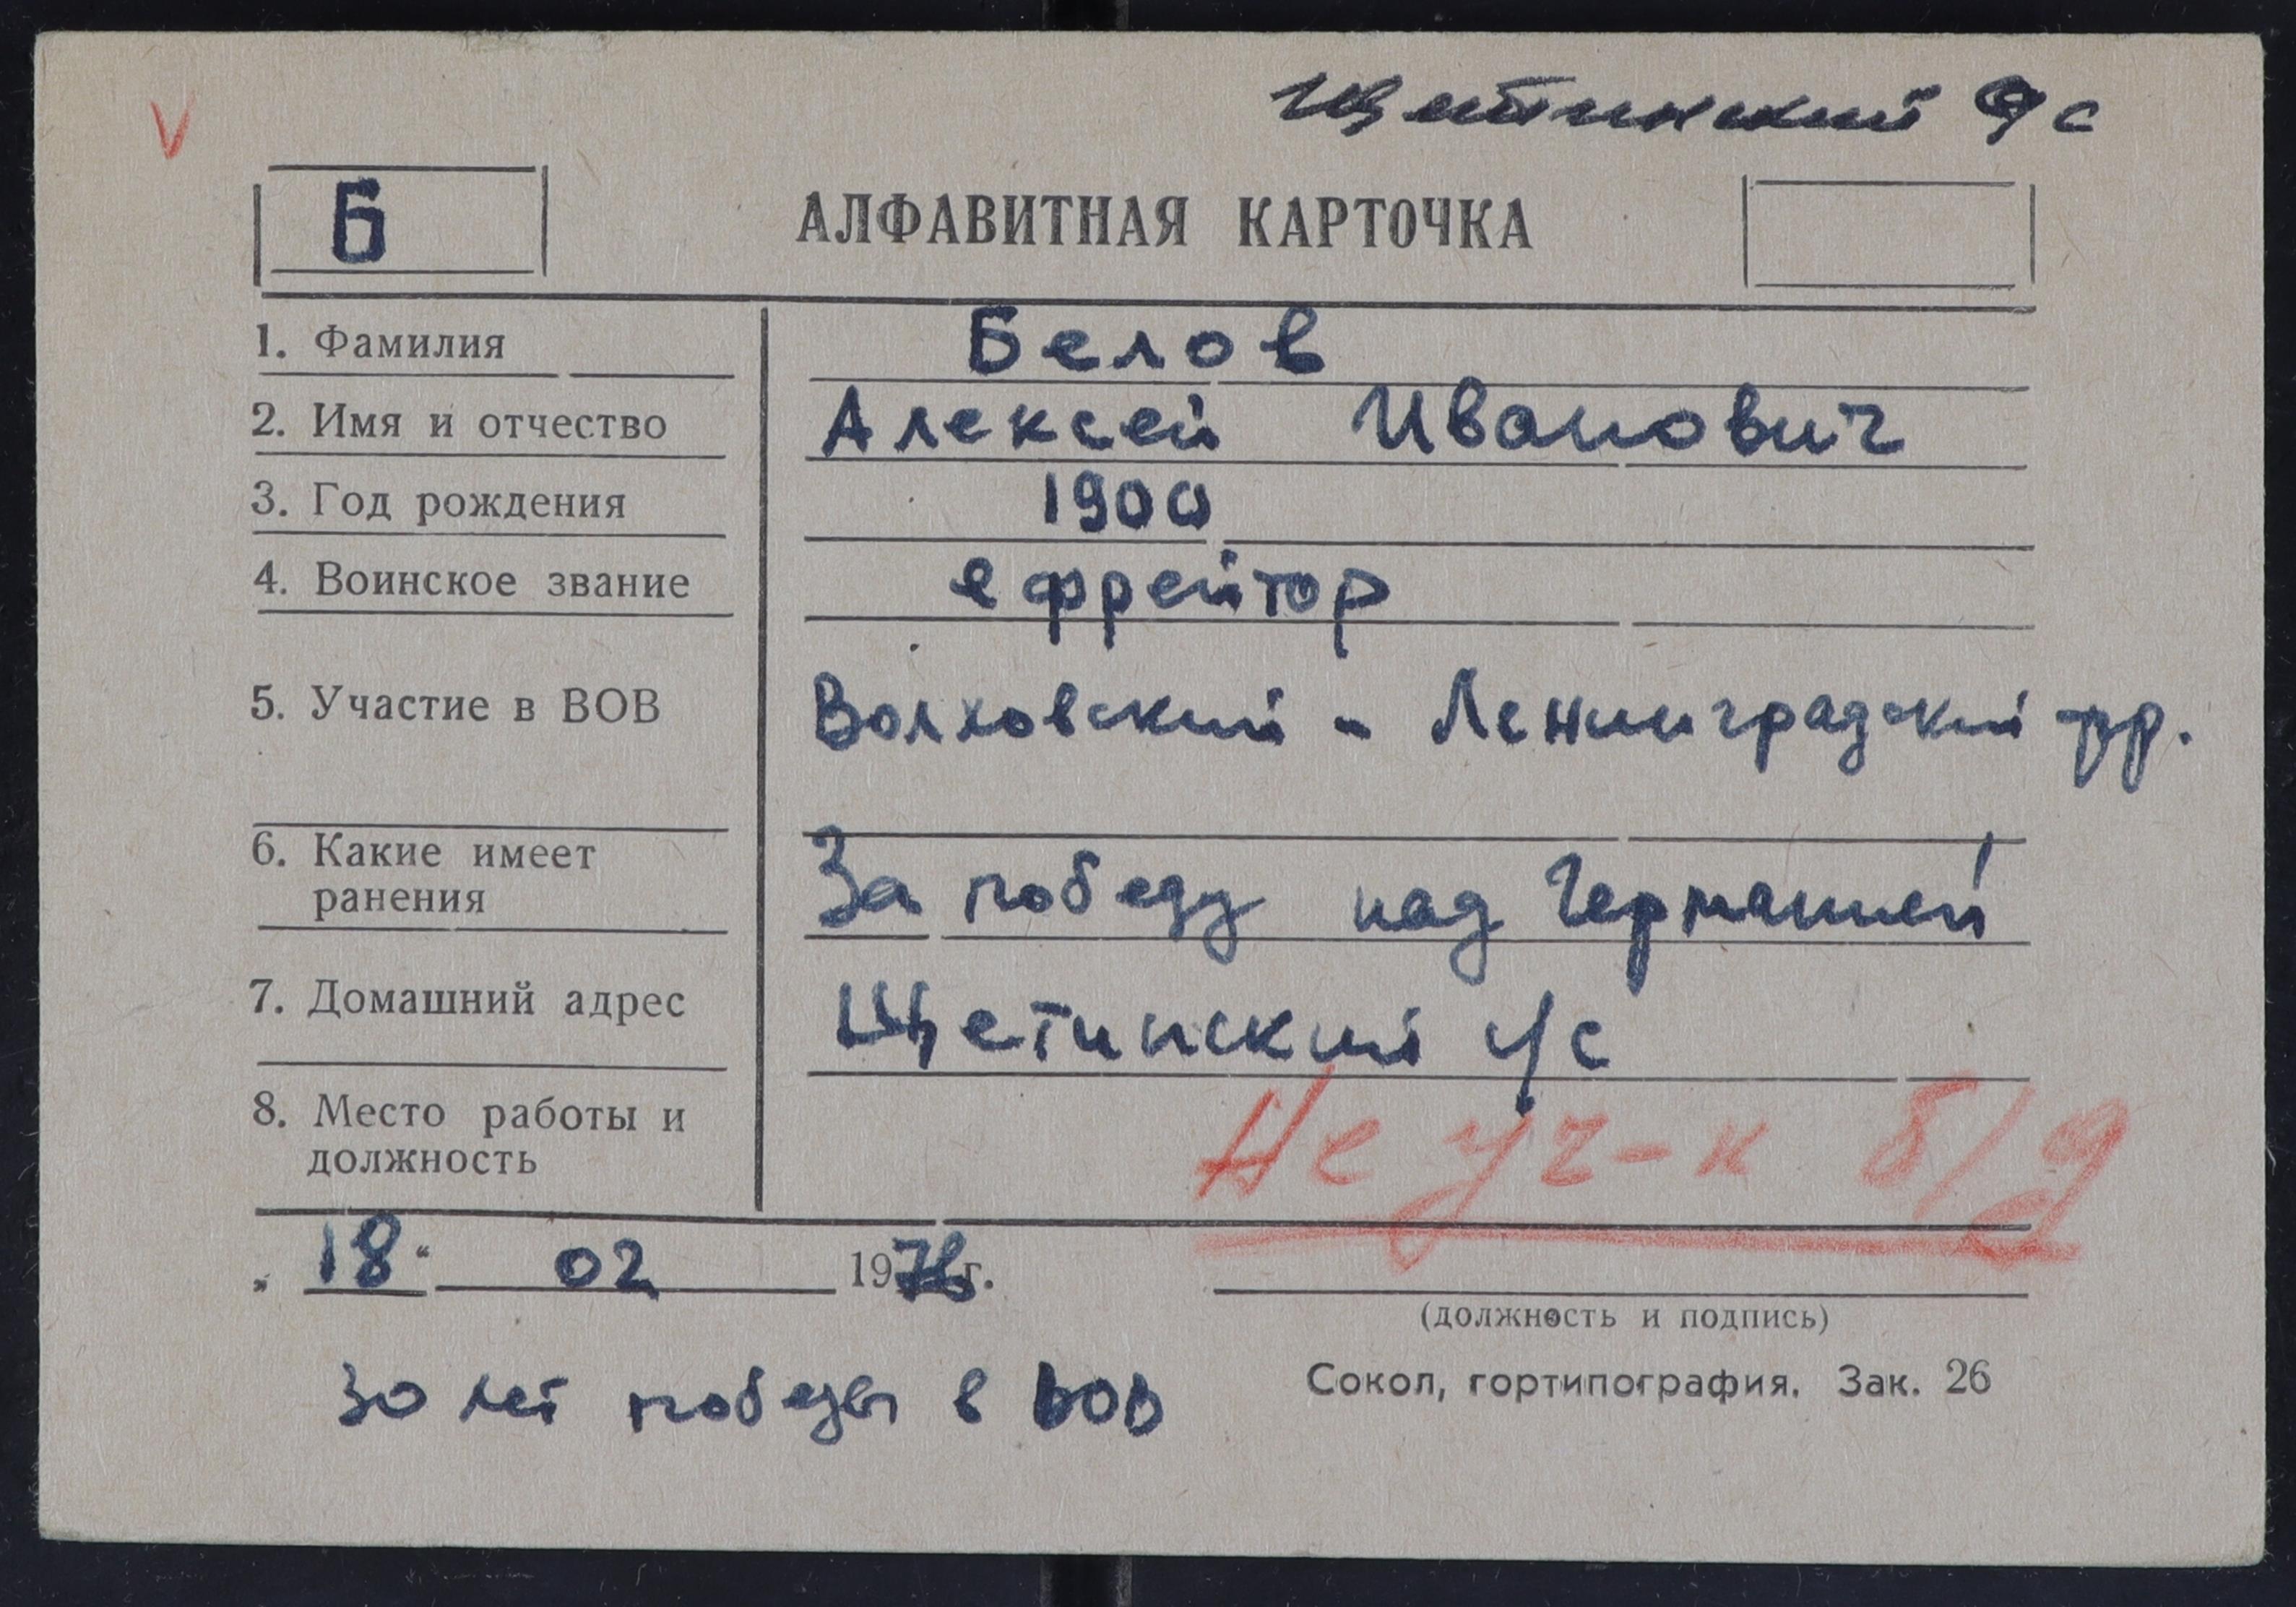 V
Щетинский с
Б
АЛФАВИТНАЯ КАРТОЧКА
1. Фамилия Белов
2. Имя и отчество Алексей Иванович
3. Год рождения 1900
4. Воинское звание ефрейтор
5. Участие в ВОВ Волховский - Ленинградский фр.
6. Какие имеет ранения За победу над Германией
7. Домашний адрес Щетинский с/с
8. Место работы и должность
Не уч-к б/д
„ 18 “ 02 1976г.
(должность и подпись)
30 лет победы в ВОВ
Сокол, гортипография. Зак. 26